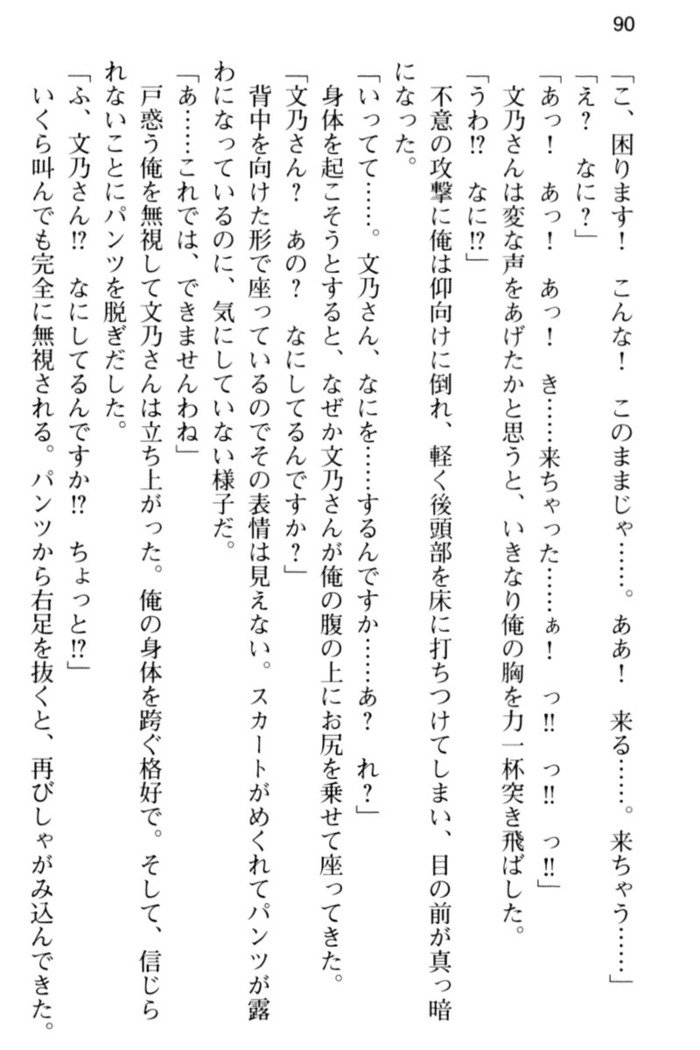 90
「こ、困ります！　こんな！　このままじゃ……。ああ！　来る……。来ちゃう……」
「え？　なに？」
「あっ！　あっ！　あっ！　き……来ちゃった……ぁ！　っ!!　っ!!　っ!!」
　文乃さんは変な声をあげたかと思うと、いきなり俺の胸を力一杯突き飛ばした。
「うわ!?　なに!?」
　不意の攻撃に俺は仰向けに倒れ、軽く後頭部を床に打ちつけてしまい、目の前が真っ暗
になった。
「いってて……。文乃さん、なにを……するんですか……あ？　れ？」
　身体を起こそうとすると、なぜか文乃さんが俺の腹の上にお尻を乗せて座ってきた。
「文乃さん？　あの？　なにしてるんですか？」
　背中を向けた形で座っているのでその表情は見えない。スカートがめくれてパンツが露
わになっているのに、気にしていない様子だ。
「あ……これでは、できませんわね」
　戸惑う俺を無視して文乃さんは立ち上がった。俺の身体を跨ぐ格好で。そして、信じら
れないことにパンツを脱ぎだした。
「ふ、文乃さん!?　なにしてるんですか!?　ちょっと!?」
　いくら叫んでも完全に無視される。パンツから右足を抜くと、再びしゃがみ込んできた。